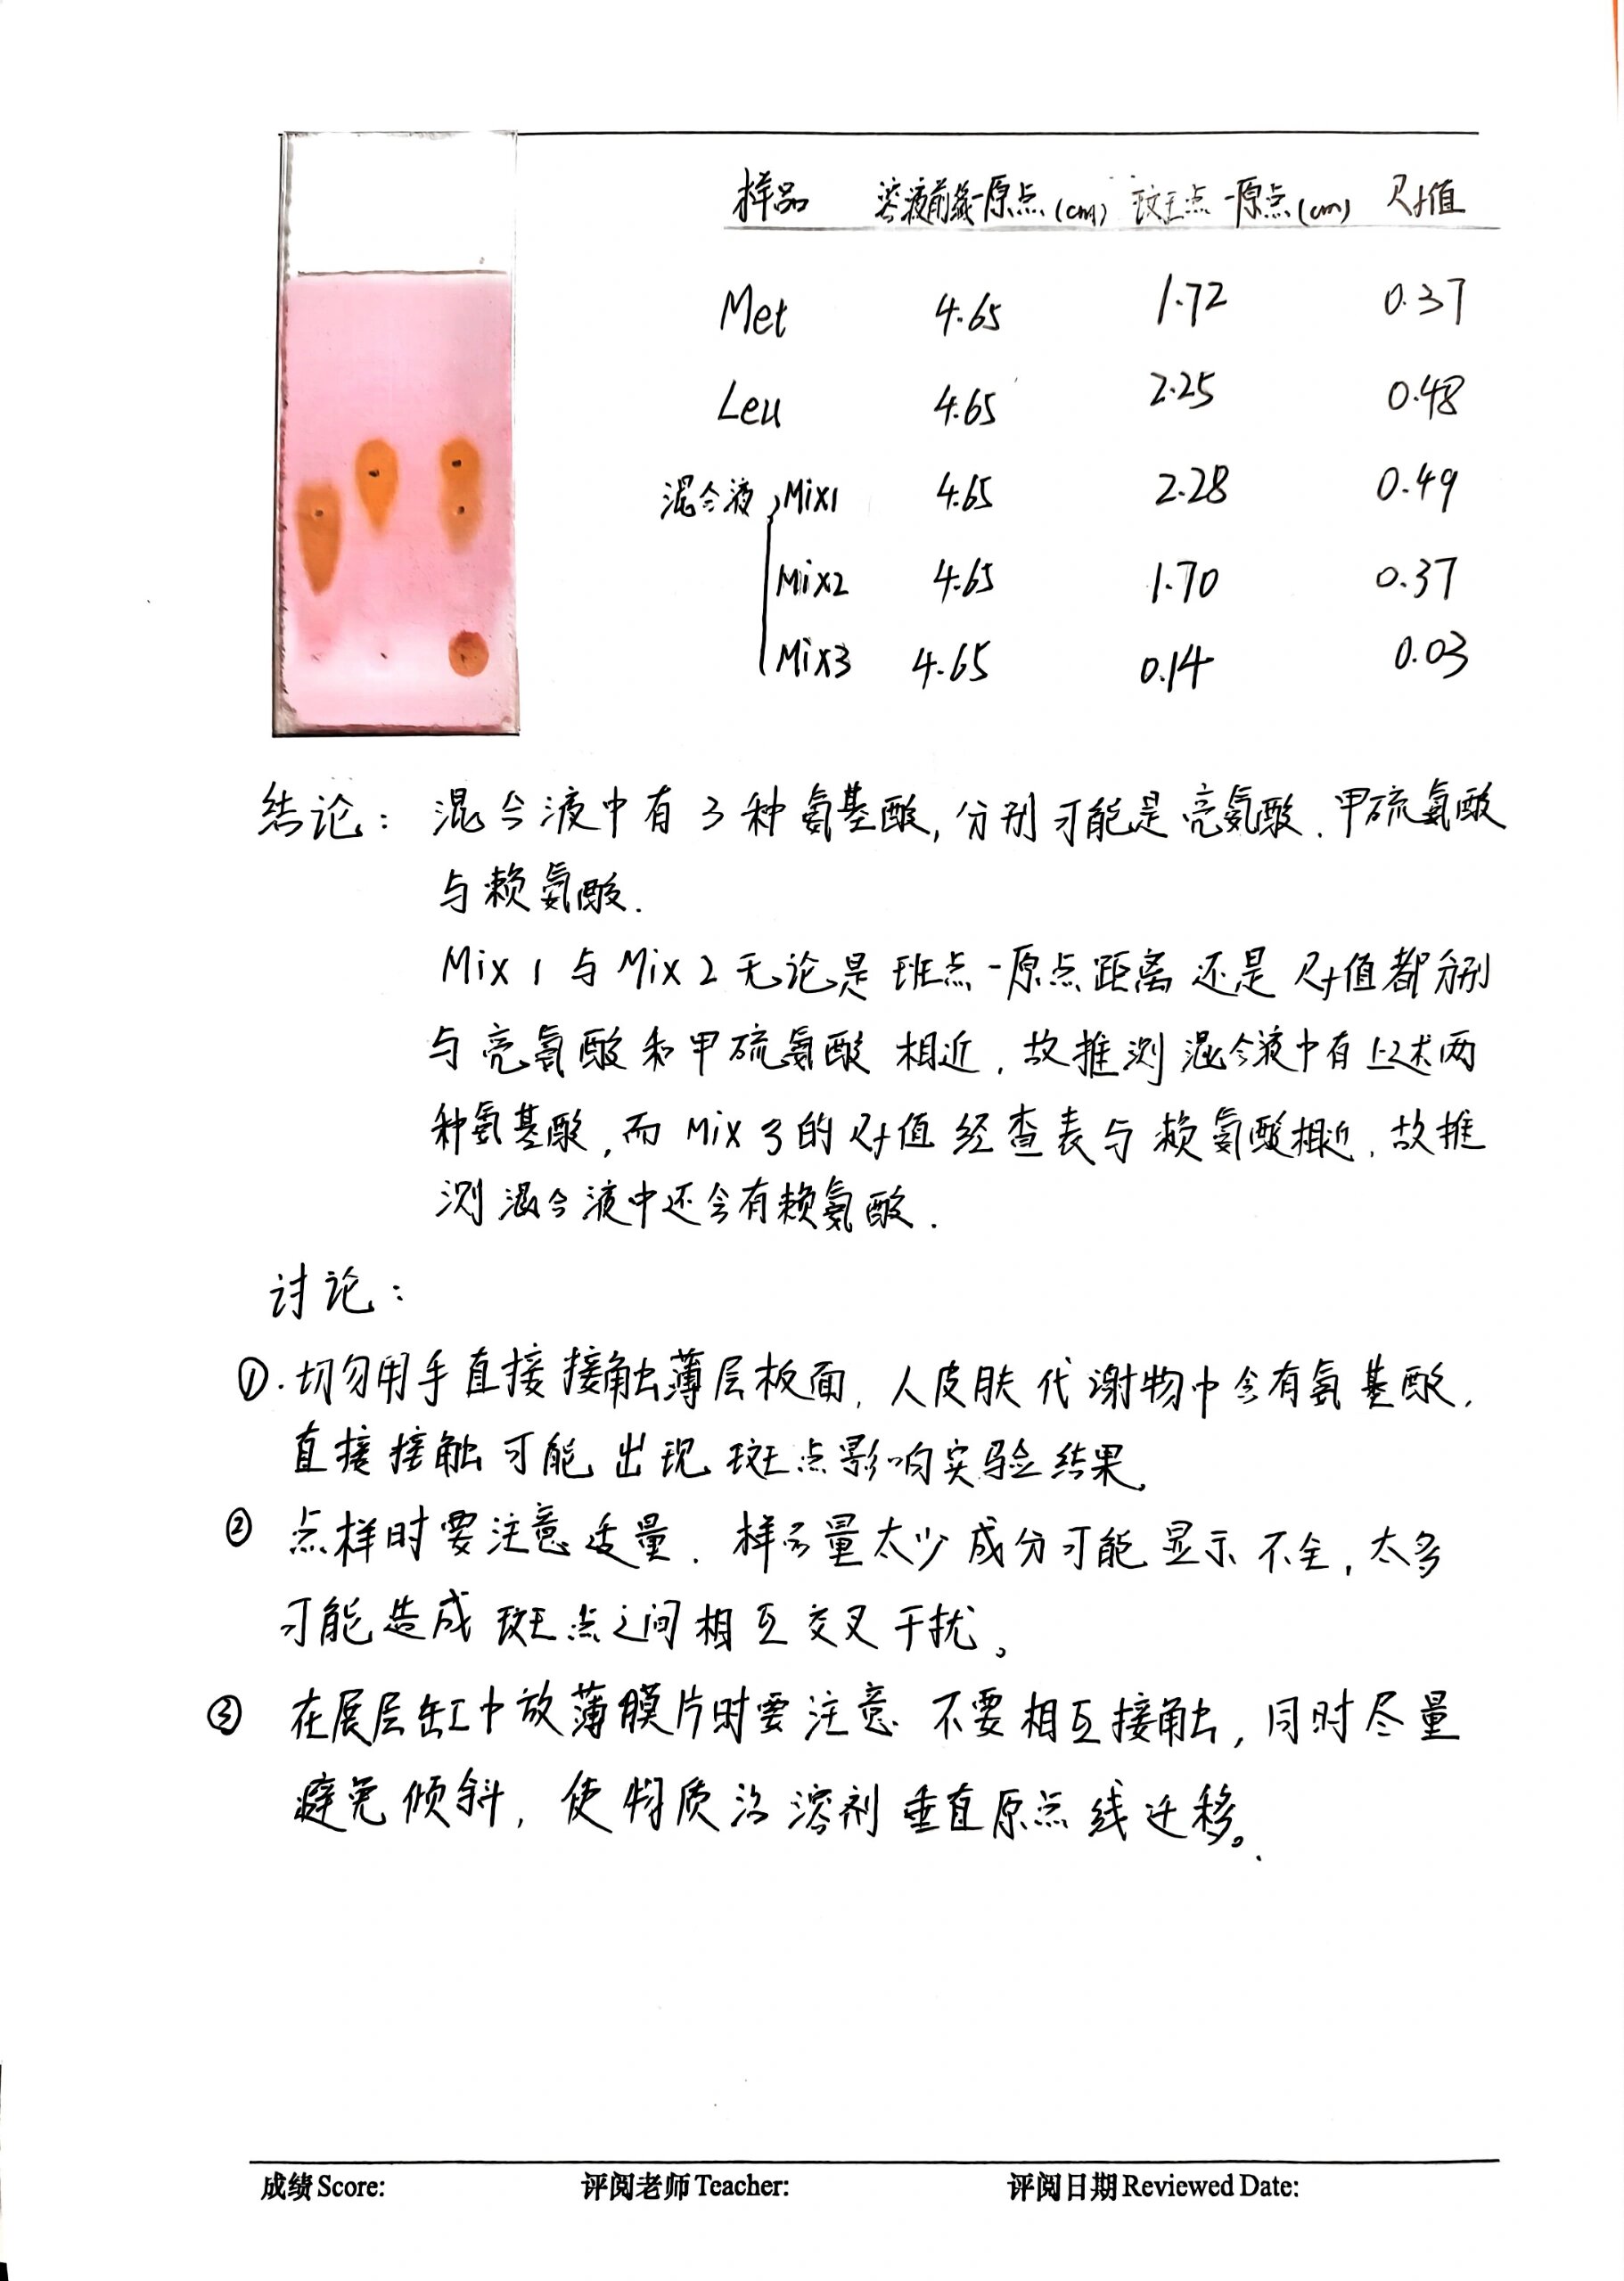 样品 溶液前缘-原点(cm) 斑点-原点(cm) Rf值
Met 4.65 1.72 0.37
Leu 4.65 2.25 0.48
混合液 Mix1 4.65 2.28 0.49
Mix2 4.65 1.70 0.37
Mix3 4.65 0.14 0.03
结论: 混合液中有3种氨基酸,分别可能是亮氨酸.甲硫氨酸
与赖氨酸.
Mix 1 与 Mix 2 无论是班点-原点距离还是Rf值都分别
与亮氨酸和甲硫氨酸相近.故推测混合液中有上述两
种氨基酸,而 Mix 3的Rf值经查表与赖氨酸相近.故推
测混合液中还含有赖氨酸.
讨论:
①.切勿用手直接接触薄层板面,人皮肤代谢物中含有氨基酸,
直接接触可能出现斑点影响实验结果。
② 点样时要注意适量.样品量太少成分可能显示不全,太多
可能造成斑点之间相互交叉干扰。
③ 在展层缸中放薄膜片时要注意不要相互接触,同时尽量
避免倾斜,使物质沿溶剂垂直原点线迁移。
成绩 Score: 评阅老师 Teacher: 评阅日期 Reviewed Date: